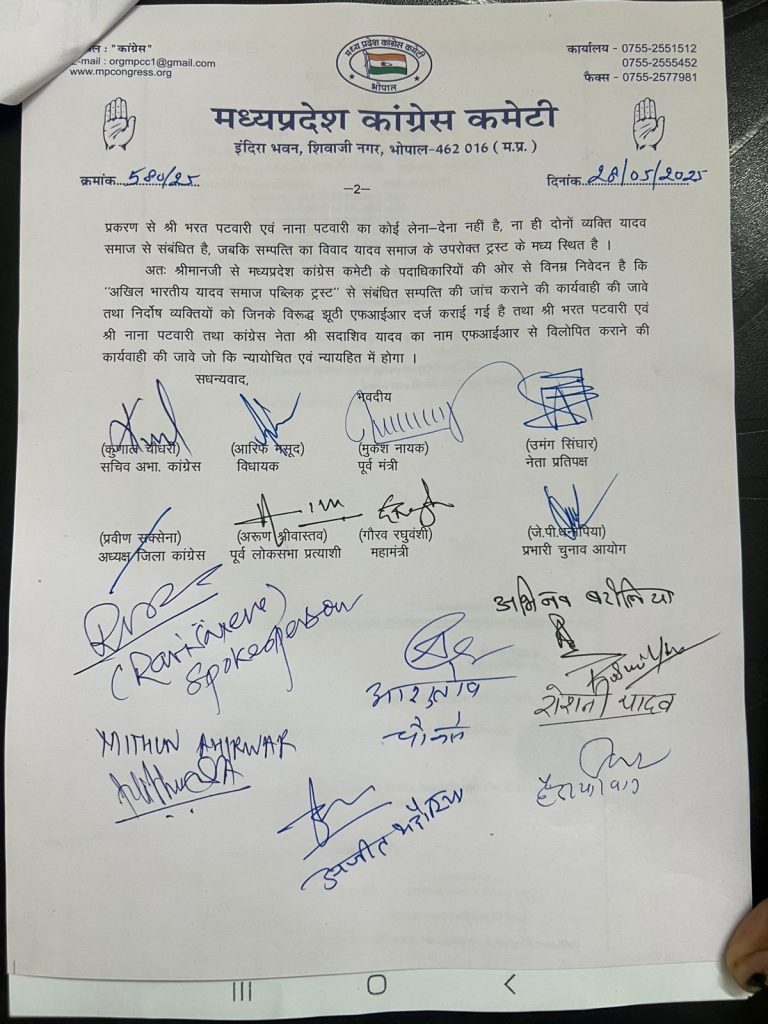 : "कांग्रेस"
mail : orgmpcc1@gmail.com
www.mpcongress.org
मध्य प्रदेश कांग्रेस कमेटी
भोपाल
कार्यालय - 0755-2551512
0755-2555452
फैक्स - 0755-2577981
मध्यप्रदेश कांग्रेस कमेटी
इंदिरा भवन, शिवाजी नगर, भोपाल-462 016 ( म.प्र. )
क्रमांक...580/25
दिनांक...28/05/2025
—2—
प्रकरण से श्री भरत पटवारी एवं नाना पटवारी का कोई लेना–देना नहीं है, ना ही दोनों व्यक्ति यादव
समाज से संबंधित है, जबकि सम्पत्ति का विवाद यादव समाज के उपरोक्त ट्रस्ट के मध्य स्थित है ।
अतः श्रीमानजी से मध्यप्रदेश कांग्रेस कमेटी के पदाधिकारियों की ओर से विनम्र निवेदन है कि
"अखिल भारतीय यादव समाज पब्लिक ट्रस्ट" से संबंधित सम्पत्ति की जांच कराने की कार्यवाही की जावे
तथा निर्दोष व्यक्तियों को जिनके विरूद्ध झूठी एफआईआर दर्ज कराई गई है तथा श्री भरत पटवारी एवं
श्री नाना पटवारी तथा कांग्रेस नेता श्री सदाशिव यादव का नाम एफआईआर से विलोपित कराने की
कार्यवाही की जावे जो कि न्यायोचित एवं न्यायहित में होगा ।
सधन्यवाद,
भवदीय
(कुणाल चौधरी) (आरिफ मसूद) (मुकेश नायक) (उमंग सिंघार)
सचिव अभा. कांग्रेस विधायक पूर्व मंत्री नेता प्रतिपक्ष
(प्रवीण सक्सेना) (अरूण श्रीवास्तव) (गौरव रघुवंशी) (जे.पी.धनोपिया)
अध्यक्ष जिला कांग्रेस पूर्व लोकसभा प्रत्याशी महामंत्री प्रभारी चुनाव आयोग
अभिनव बरोलिया
Spokesperson
रोशनी यादव
MITHUN AHIRWAR